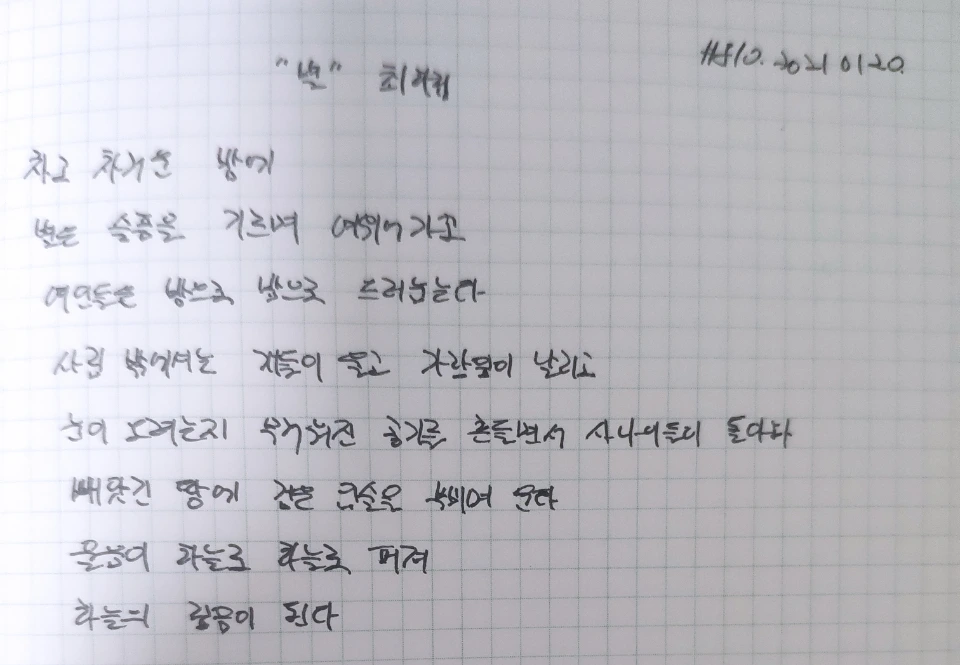 #810. 2021 01 20.
"별" 최하림
차고 차가운 방에
별은 슬픔을 기르며 여위어가고
여인들은 방으로 방으로 드러눕는다
사립 밖에서는 개들이 울고 가랑잎이 날리고
눈이 오려는지 무거워진 공기를 흔들면서 사나이들이 돌아와
빼앗긴 땅에 검은 구슬을 비비며 운다
울음이 하늘로 하늘로 퍼져
하늘의 울음이 된다